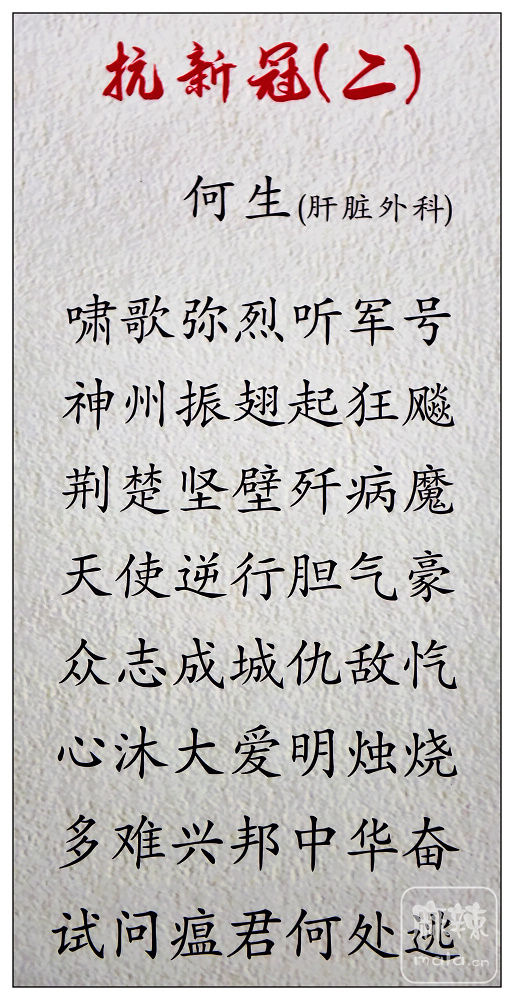 抗新冠(二)
何生(肝脏外科)
啸歌弥烈听军号
神州振翅起狂飚
荆楚坚壁歼病魔
天使逆行胆气豪
众志成城仇敌忾
心沐大爱明烛烧
多难兴邦中华奋
试问瘟君何处逃
麻辣
mala.cn